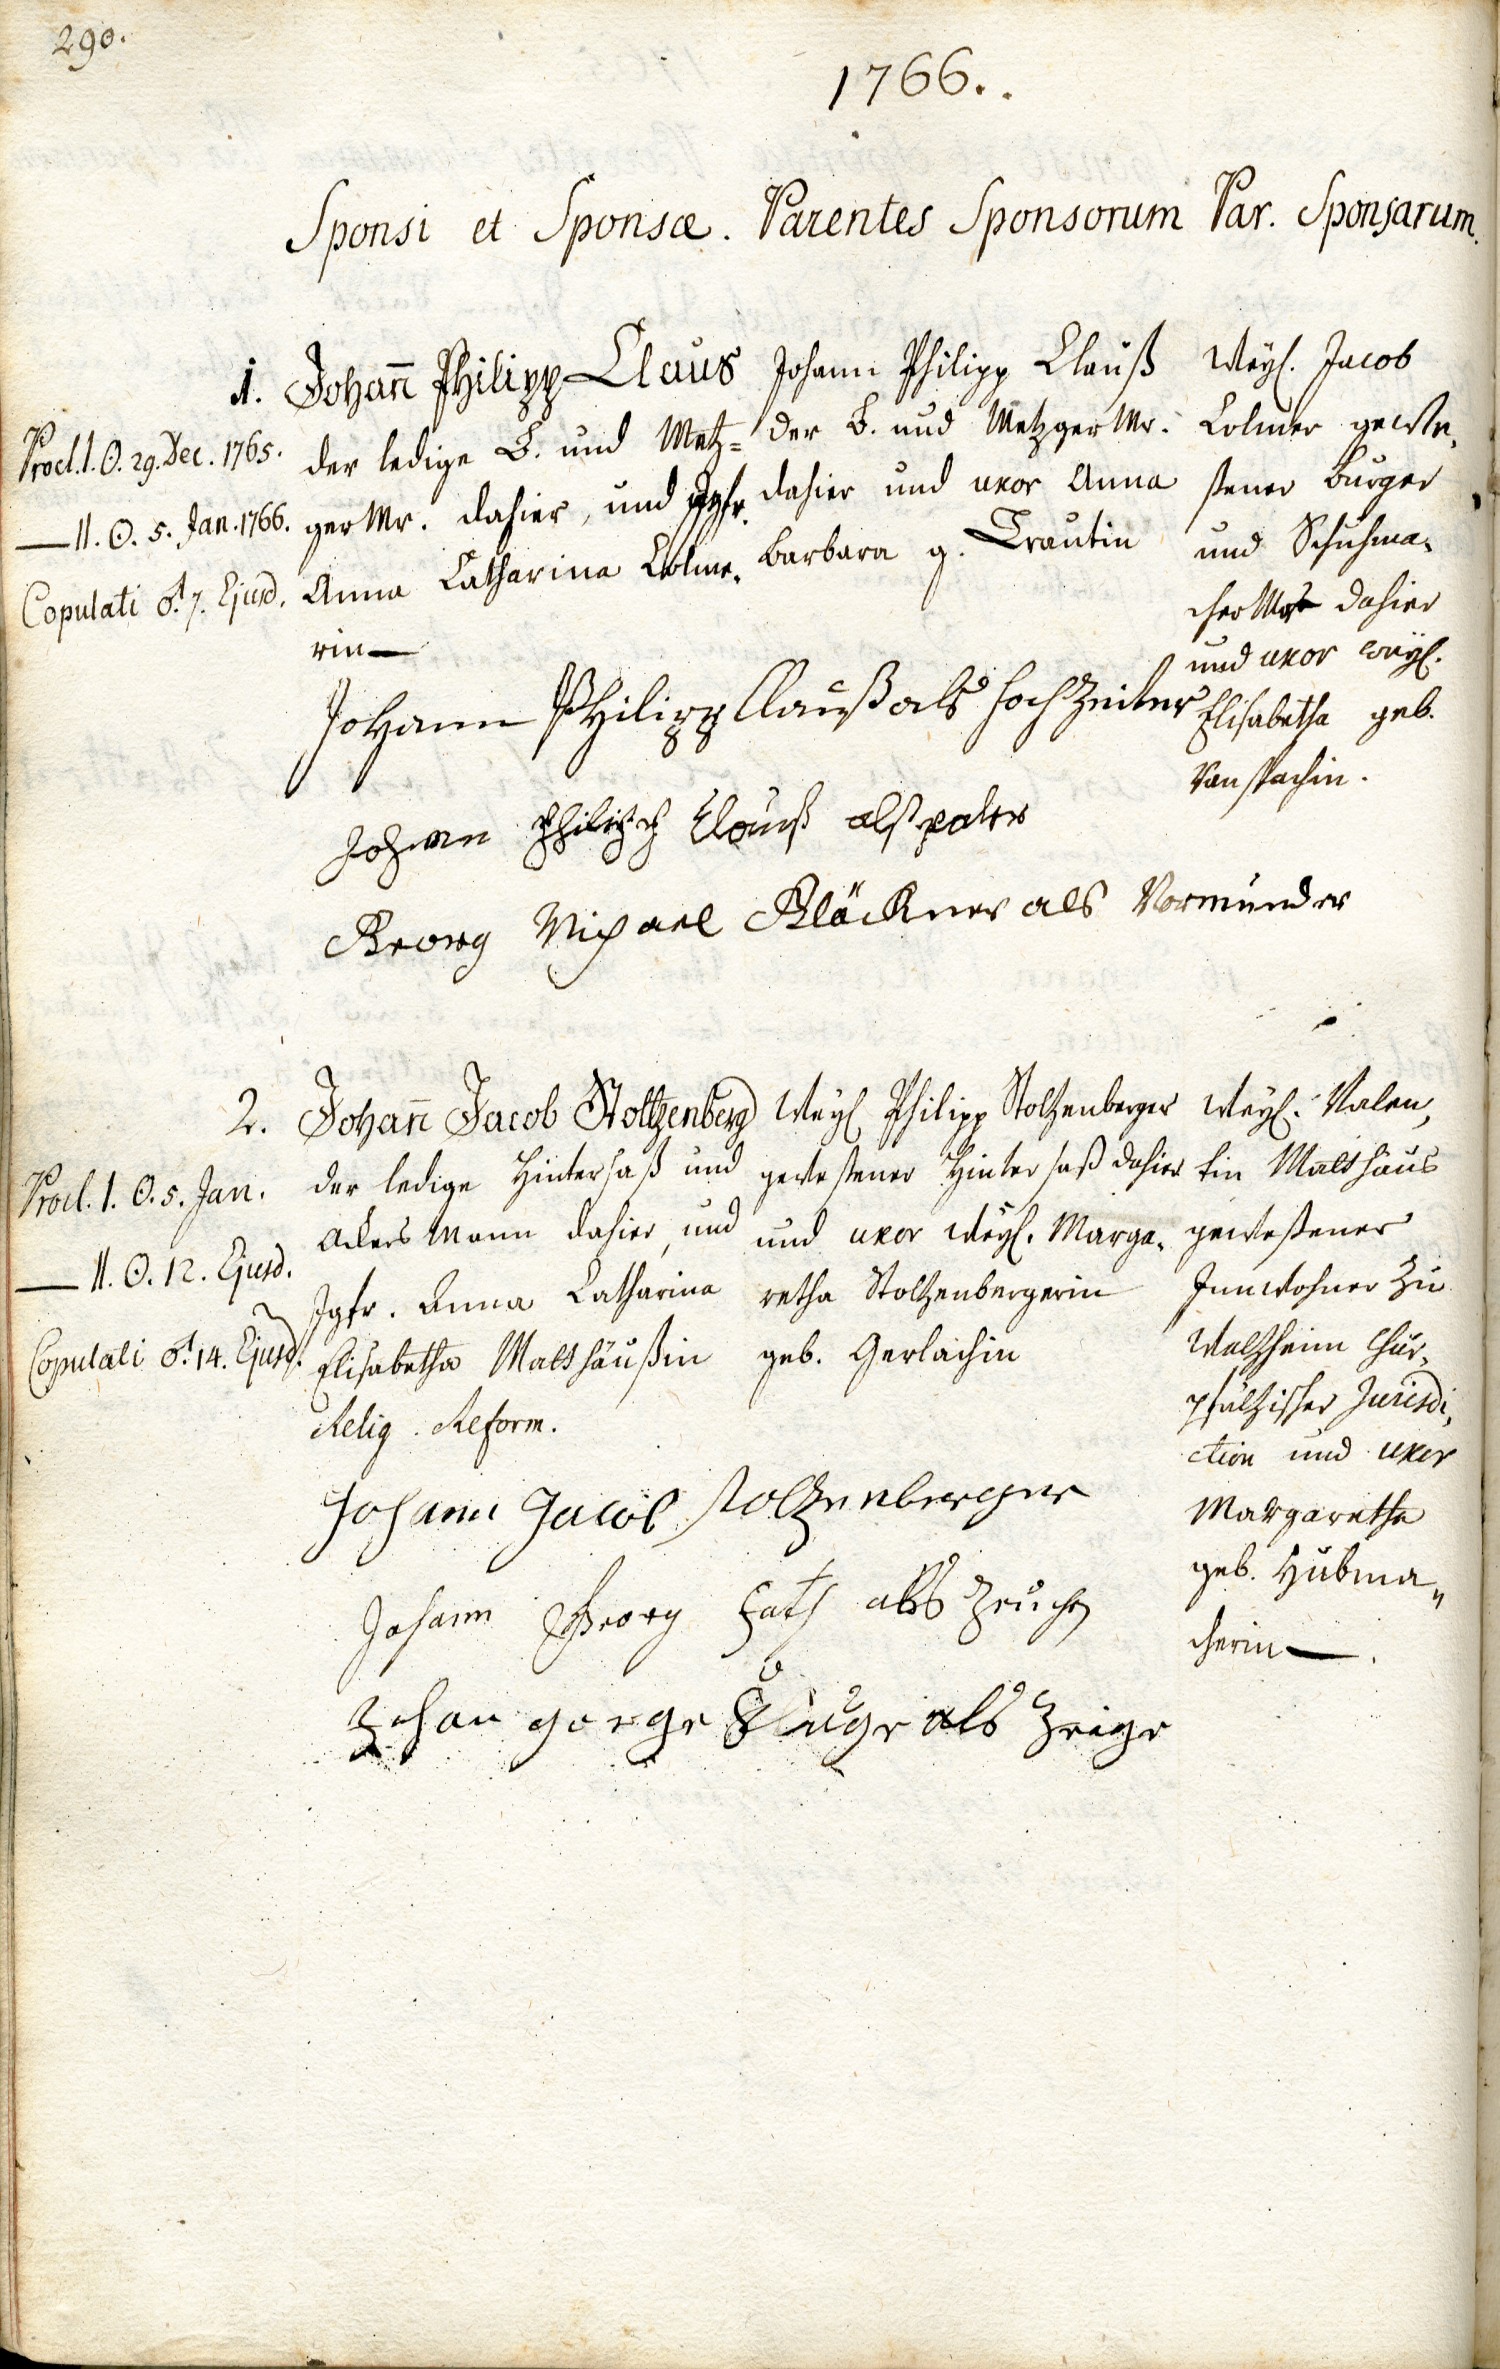 290.
1766.
Sponsi et Sponsæ. Parentes Sponsorum Par. Sponsarum.
1.
Procl. I. ☉. 29. Dec. 1765.
— II. ☉. 5. Jan. 1766.
Copulati ♂. 7. Ejusd.
Johan̅ Philipp Claus
der ledige B. und Metz=
ger Mr. dahier, und Jgfr.
Anna Catharina Colme,
rin—
Johann Philipp Clauß
der B. und Metzger Mr.
dahier und uxor Anna
Barbara g. Trautin
Weyl. Jacob
Colmer gewe,
ßener Burger
und Schuhma,
cher Mr dahier
und uxor weyl.
Elisabetha geb.
Vanspachin.
Johann Philipp Clauß als hochzeiter
Johann Philipp Clauß alß pater
Georg Michael Glöckner als Vormünder
2.
Procl. I. ☉. 5. Jan.
— II. ☉. 12. Ejusd.
Copulati ♂. 14. Ejusd.
Johan̅ Jacob Stoltzenberg
der ledige Hintersaß und
Ackers Mann dahier, und
Jgfr. Anna Catharina
Elisabetha Matthäußin
Relig. Reform.
Weyl Philipp Stoltzenberger
geweßener Hintersaß dahier
und uxor weyl. Marga,
retha Stoltzenbergerin
geb. Gerlachin
Weyl. Valen,
tin Matthäus
geweßener
Innwohner zu
Waltzheim Chur,
pfältzischer Jurisdi,
ction und uxor
Margaretha
geb. Hubma,,
cherin—.
Johann Jacob Stoltzenberger
Johann Georg Fath als Zeuche
Johan gorge als Zeige